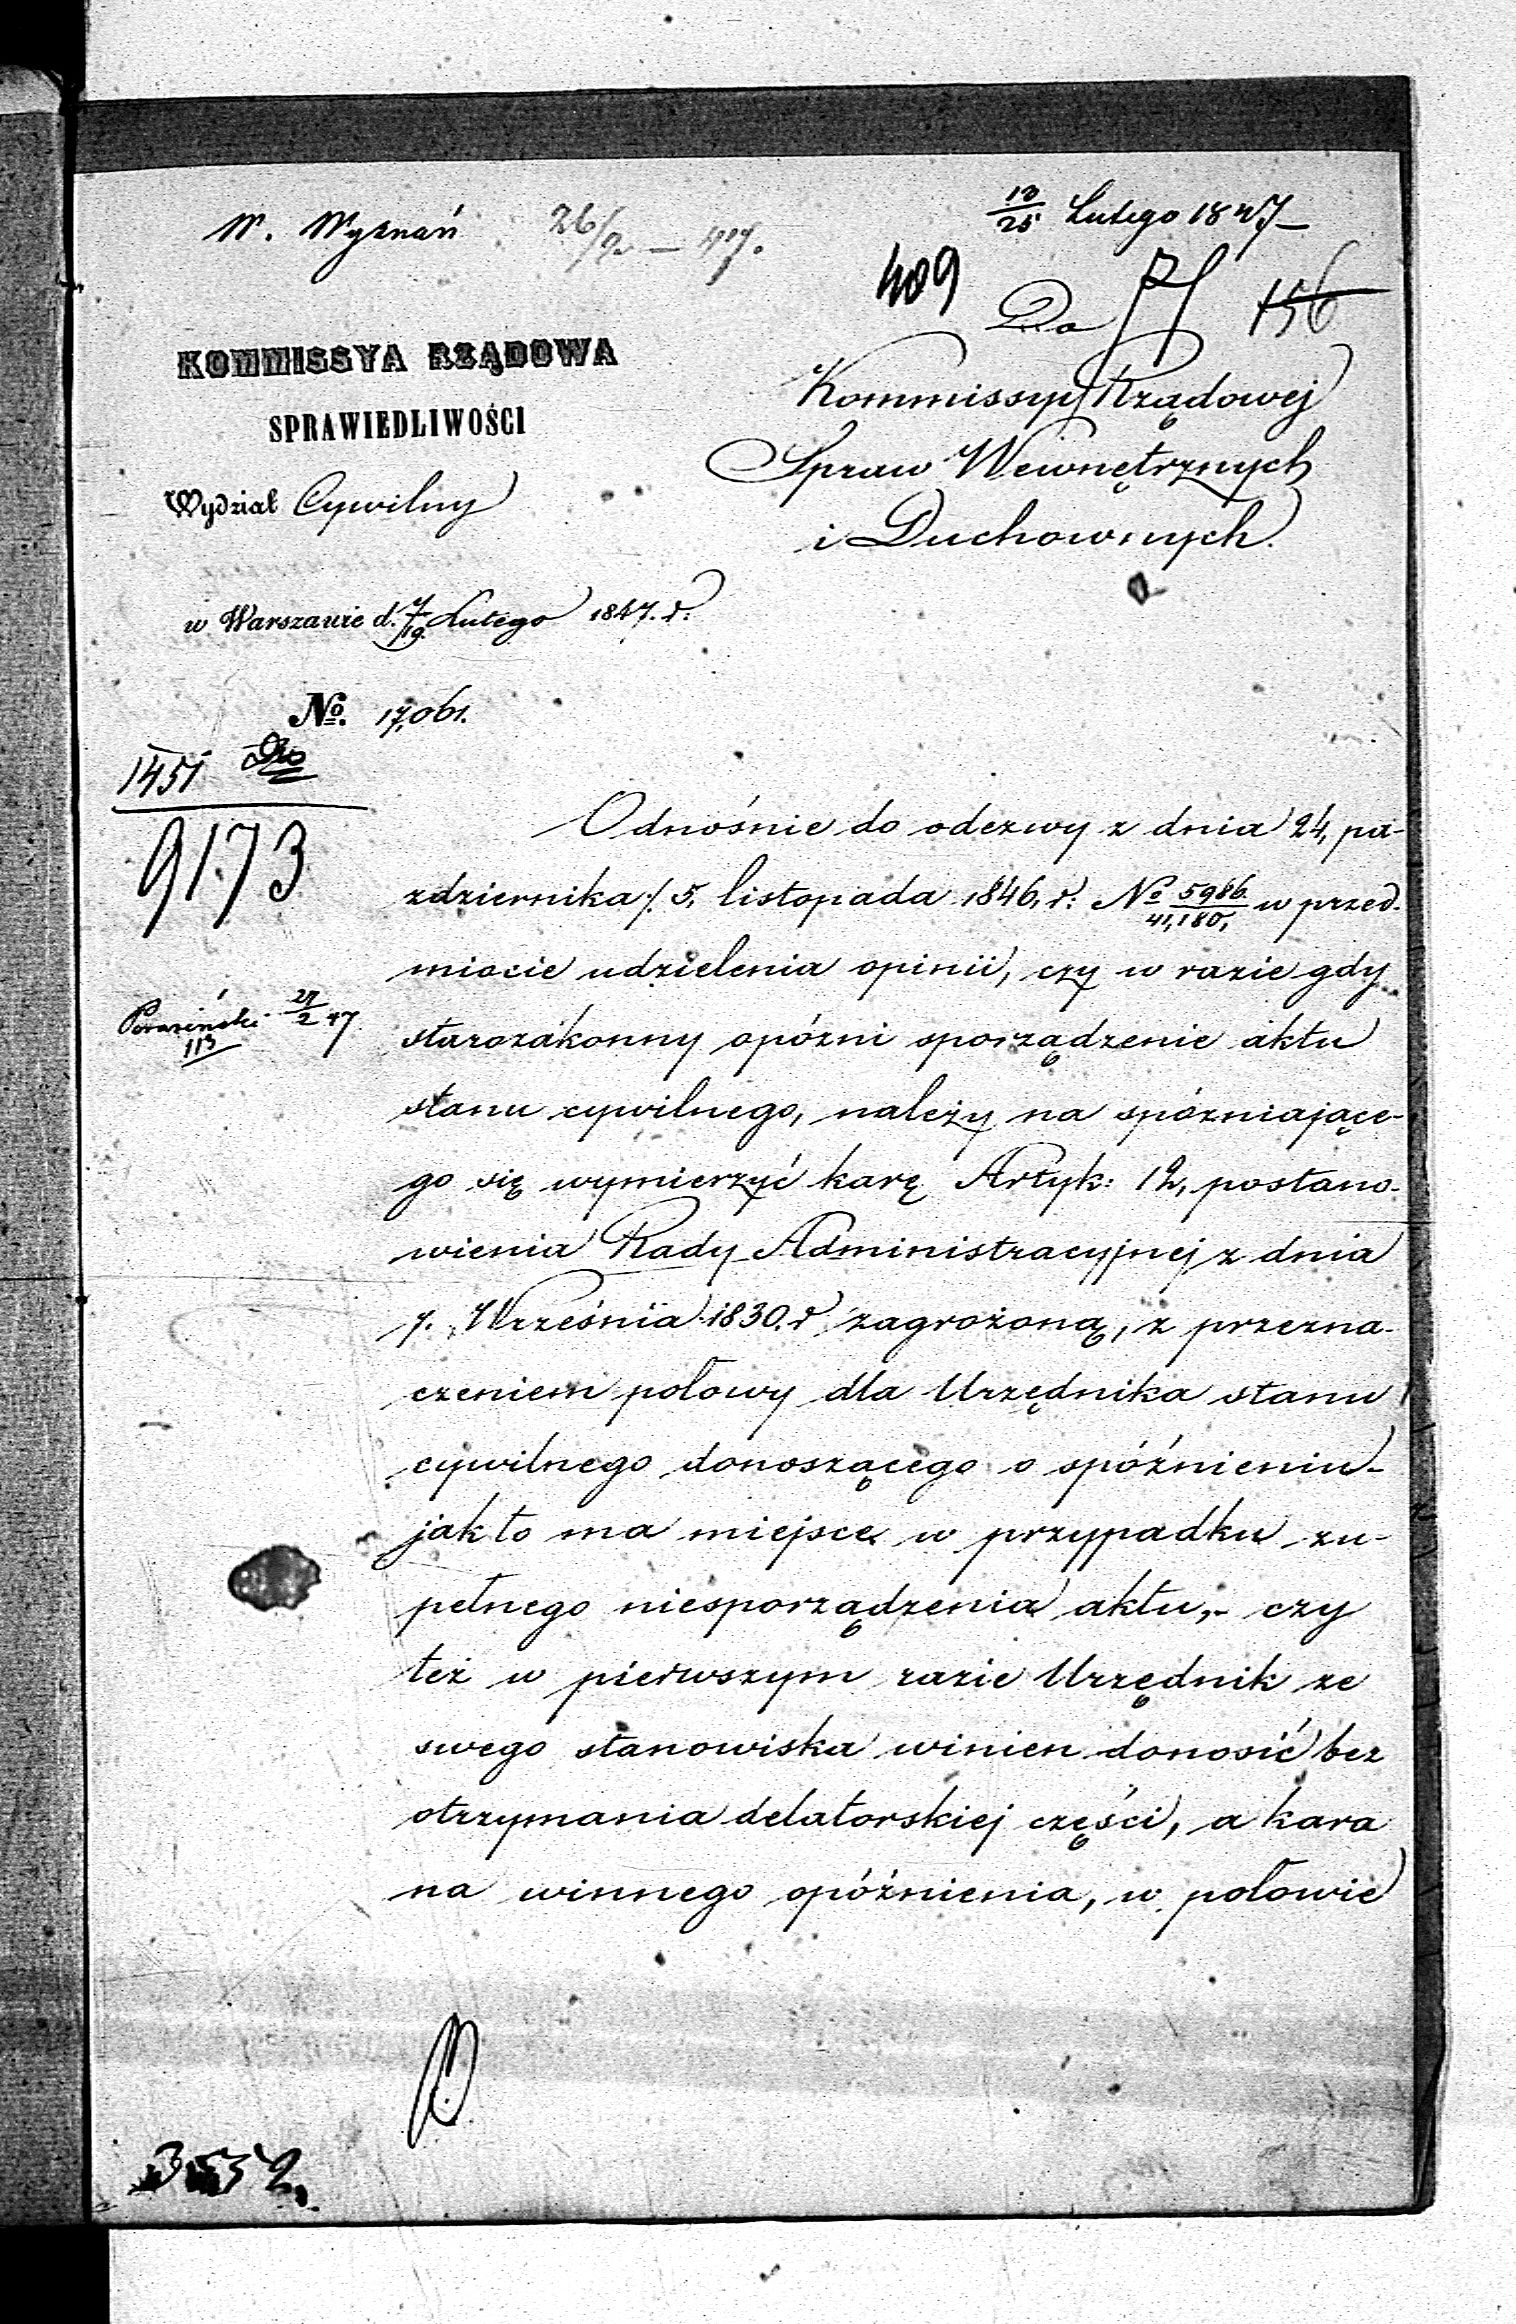 W. Wyznań 26/2 — 47.
13/25 Lutego 1847
409
156
Do
KOMMISSYA RZĄDOWA
SPRAWIEDLIWOŚCI
Wydział Cywilny
Kommissyi Rządowej
Spraw Wewnętrznych
i Duchownych.
w Warszawie d. 7/19. Lutego 1847. r.
No. 17,061.
1451
9173
27/2 47
113
Odnośnie do odezwy z dnia 24, pa-
zdziernika /. 5, listopada 1846, r. No 5986/41,180, w przed-
miocie udzielenia opinii, czy w razie gdy
starozakonny opózni sporządzenie aktu
stanu cywilnego, należy na spózniające-
go się wymierzyć karę Artyk: 12, postano-
wienia Rady Administracyjnej z dnia
7. Września 1830. r zagrożoną, z przezna-
czeniem połowy dla Urzędnika stanu
cywilnego donoszącego o spóźnieniu-
jak to ma miejsce w przypadku zu-
pełnego niesporządzenia aktu,- czy
też w pierwszym razie Urzędnik ze
swego stanowiska winien donosić bez
otrzymania delatorskiej części, a kara
na winnego opóźnienia, w połowie
3552.